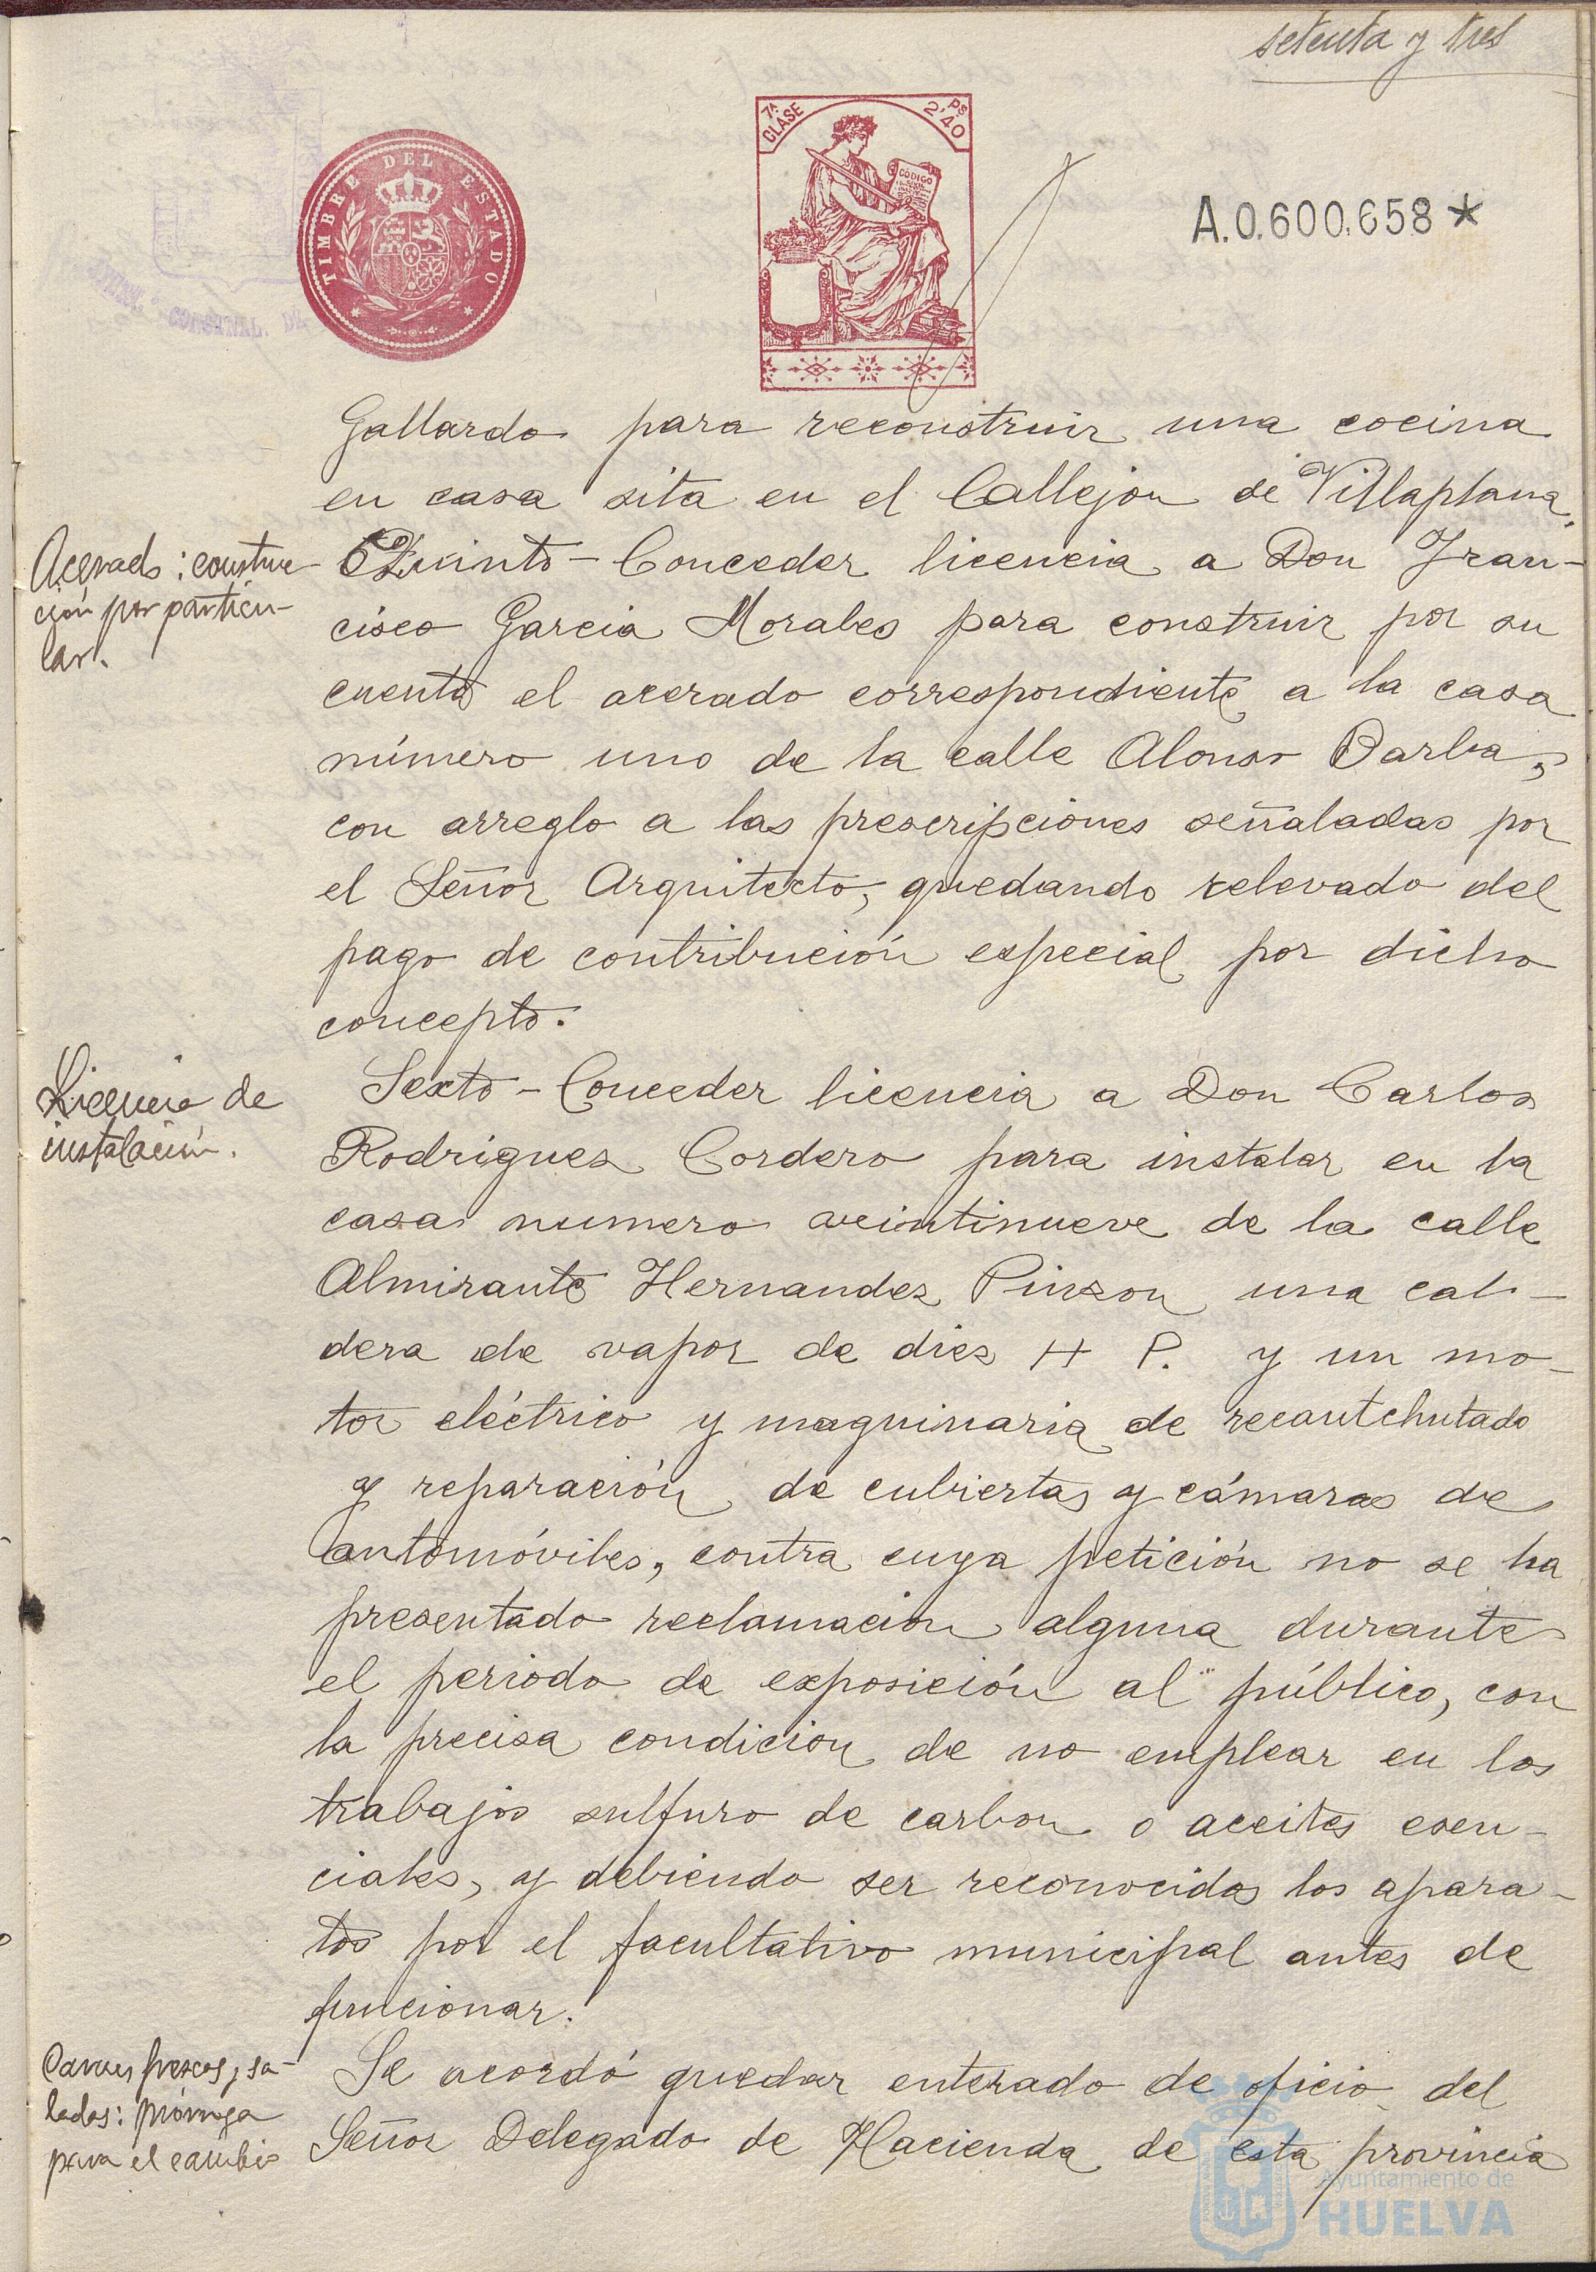 setenta y tres
TIMBRE DEL ESTADO
7ª CLASE
Ps 2'40
CÓDIGO
A.0.600.658*
CONSUNAL. DE
Gallardo para reconstruir una cocina
en casa sita en el Callejon de Villaplana.
Acerado: construc-
ción por particu-
lar.
Quinto - Conceder licencia a Don Fran-
cisco Garcia Morales para construir por su
cuenta el acerado correspondiente a la casa
número uno de la calle Alonso Barba,
con arreglo a las prescripciones señaladas por
el Señor Arquitecto, quedando relevado del
pago de contribución especial por dicho
concepto.
Licencia de
instalación.
Sexto - Conceder licencia a Don Carlos
Rodriguez Cordero para instalar en la
casa numero veintinueve de la calle
Almirante Hernandez Pinzon una cal-
dera de vapor de diez H P. y un mo-
tor eléctrico y maquinaria de recautchutado
y reparación de cubiertas y cámaras de
automóviles, contra cuya petición no se ha
presentado reclamacion alguna durante
el periodo de exposición al público, con
la precisa condicion de no emplear en los
trabajos sulfuro de carbon o aceites esen-
ciales, y debiendo ser reconocidos los apara-
tos por el facultativo municipal antes de
funcionar.
Carnes frescas y sa-
ladas: prórroga
para el cambio
Se acordó quedar enterado de oficio del
Señor Delegado de Hacienda de esta provincia
Ayuntamiento de
HUELVA